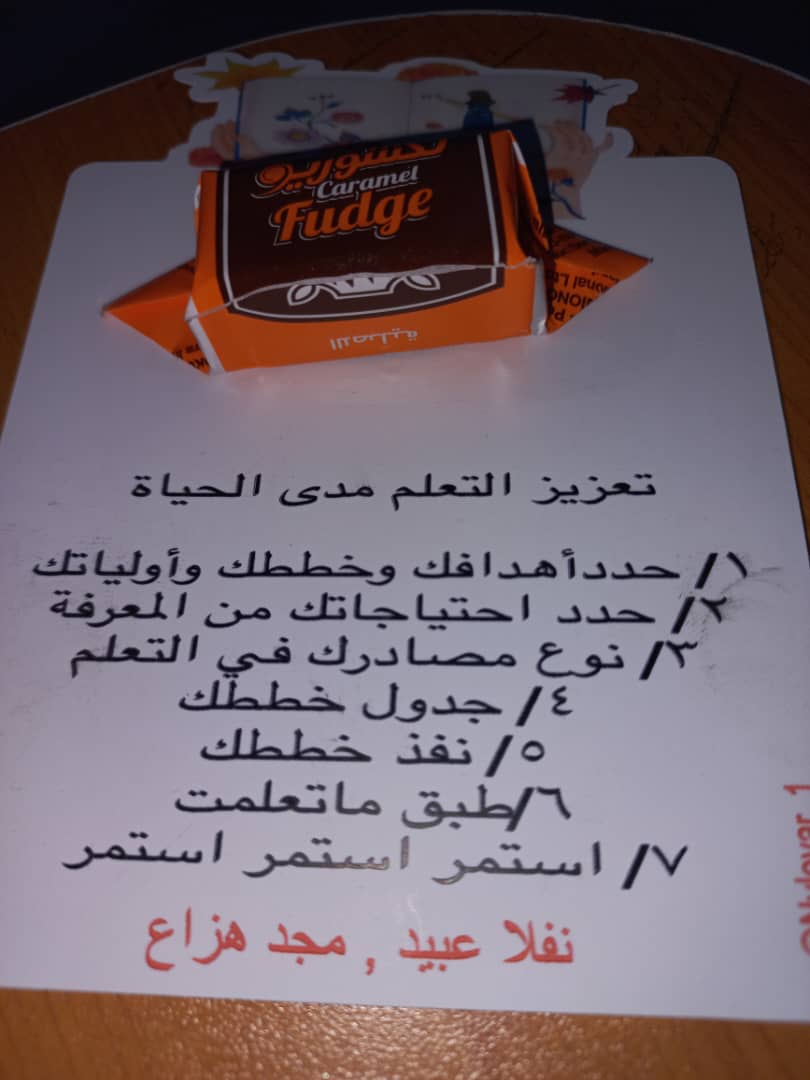 Caramel
Fudge
الاصلية
تعزيز التعلم مدى الحياة
١/ حددأهدافك وخططك وأولياتك
٢/ حدد احتياجاتك من المعرفة
٣/ نوع مصادرك في التعلم
٤/ جدول خططك
٥/ نفذ خططك
٦/طبق ماتعلمت
٧/ استمر استمر استمر
نفلا عبيد , مجد هزاع